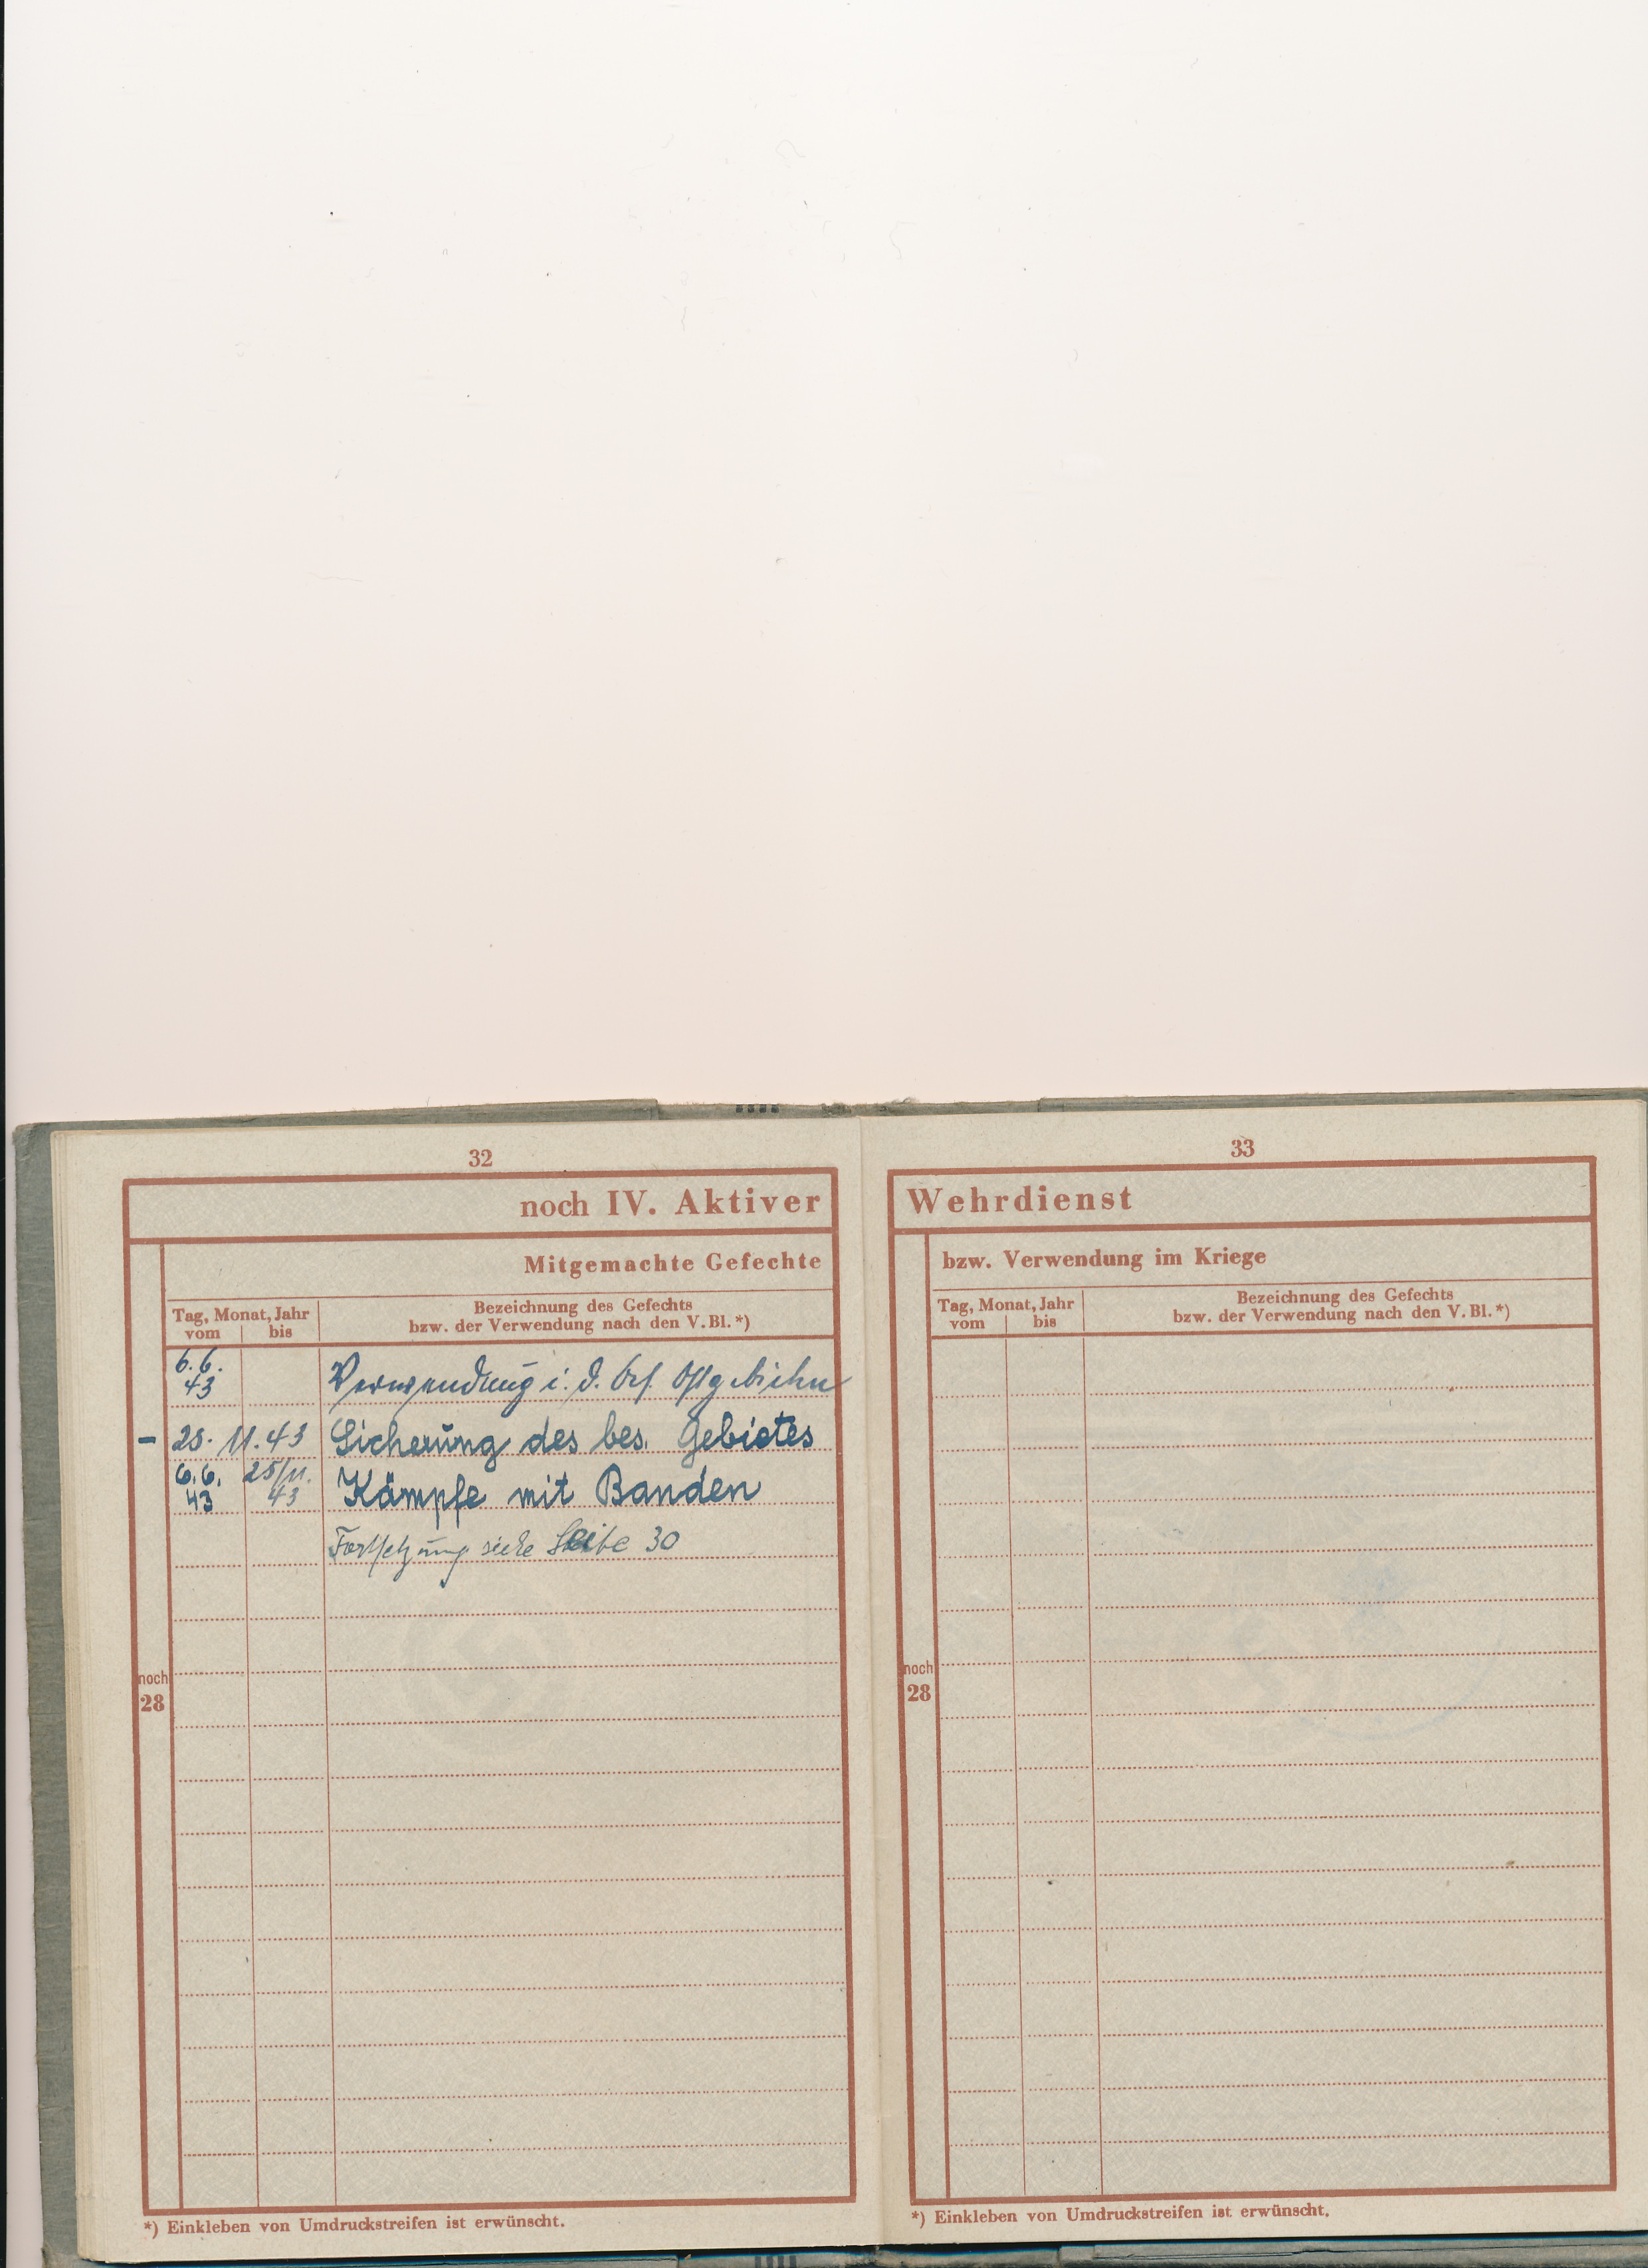 32
noch IV. Aktiver
Mitgemachte Gefechte
Tag, Monat, Jahr
vom bis
Bezeichnung des Gefechts
bzw. der Verwendung nach den V.Bl.*)
6.6.
43
Verwendung i. d. bes. Ostgebieten
- 25. 11. 43 Sicherung des bes. Gebietes
6.6. 25/11.
43 43 Kämpfe mit Banden
Fortsetzung siehe Seite 30
noch
28
*) Einkleben von Umdruckstreifen ist erwünscht.
33
Wehrdienst
bzw. Verwendung im Kriege
Tag, Monat, Jahr
vom bis
Bezeichnung des Gefechts
bzw. der Verwendung nach den V.Bl.*)
noch
28
*) Einkleben von Umdruckstreifen ist erwünscht.